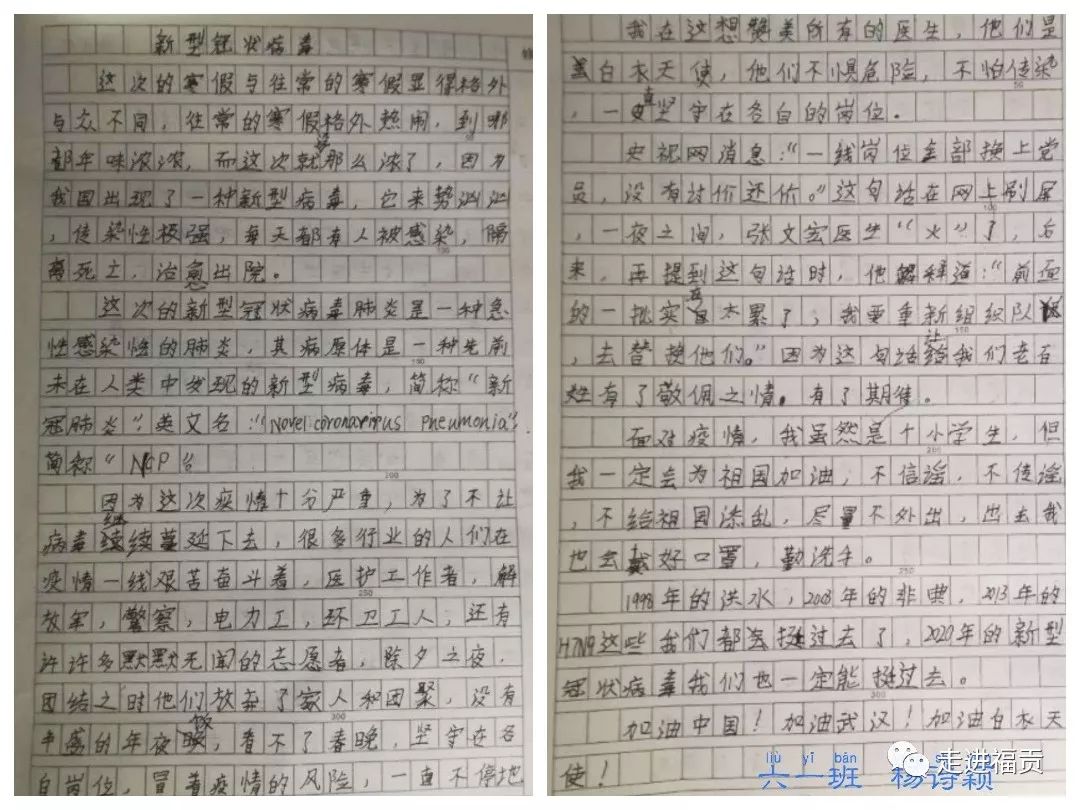 新型冠状病毒
这次的寒假与往常的寒假显得格外
与众不同，往常的寒假格外热闹，到哪
都年味浓浓，而这次就没那么浓了，因为
我国出现了一种新型病毒，它来势汹汹
，传染性极强，每天都有人被感染，隔
离死亡，治愈出院。
这次的新型冠状病毒肺炎是一种急
性感染性的肺炎，其病原体是一种先前
未在人类中发现的新型病毒，简称“新
冠肺炎”英文名：“Novel coronavirpus Pneumonia”.
简称“NCP”。
因为这次疫情十分严重，为了不让
病毒继续蔓延下去，很多行业的人们在
疫情一线艰苦奋斗着，医护工作者，解
放军，警察，电力工，环卫工人，还有
许许多默默无闻的志愿者，除夕之夜，
团结之时他们放弃了家人和团聚，没有
丰盛的年夜饭，看不了春晚，坚守在各
自岗位，冒着疫情的风险，一直不停地
我在这想赞美所有的医生，他们是
白衣天使，他们不惧危险，不怕传染
，一直坚守在各自的岗位。
央视网消息：“一线岗位全部换上党
员，没有讨价还价。”这句话在网上刷屏
，一夜之间，张文宏医生“火”了，后
来，再提到这句话时，他解释道：“前面
的一批实在太累了，我要重新组织队伍
，去替换他们。”因为这句话让我们老百
姓有了敬佩之情。有了期待。
面对疫情，我虽然是个小学生，但
我一定会为祖国加油，不信谣，不传谣
，不给祖国添乱，尽量不外出，出去我
也会戴好口罩，勤洗手。
1998年的洪水，2003年的非典，2013年的
H7N9这些我们都挺过去了，2020年的新型
冠状病毒我们也一定能挺过去。
加油中国！加油武汉！加油白衣天
使！
liù yī bān
六一班 杨诗颖
走进福贡